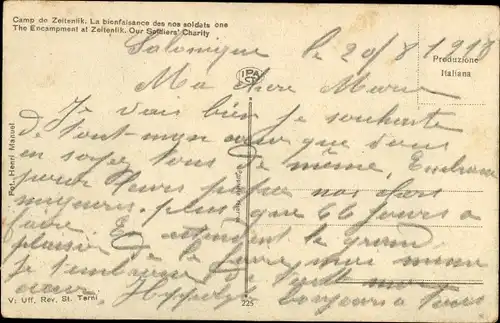 Camp de Zeitenlik. La bienfaisance des nos soldats one
The Encampment at Zeitenlik. Our Soldiers' Charity
Salonique le 20/8 1918
Produzione
Italiana
IPA
CT
Ma chère Marie
Je vais bien je souhaite
de tout mon cœur que vous
en soyez tous de même.
pour nos chers
plus que 66 jours a
faire. En attendant le grand
plaisir de le faire moi même
je t'embrasse
cœur. Hyppolyte toujours a tous
Fot. Henri Manuel
V: Uff. Rev. St. Terni
225